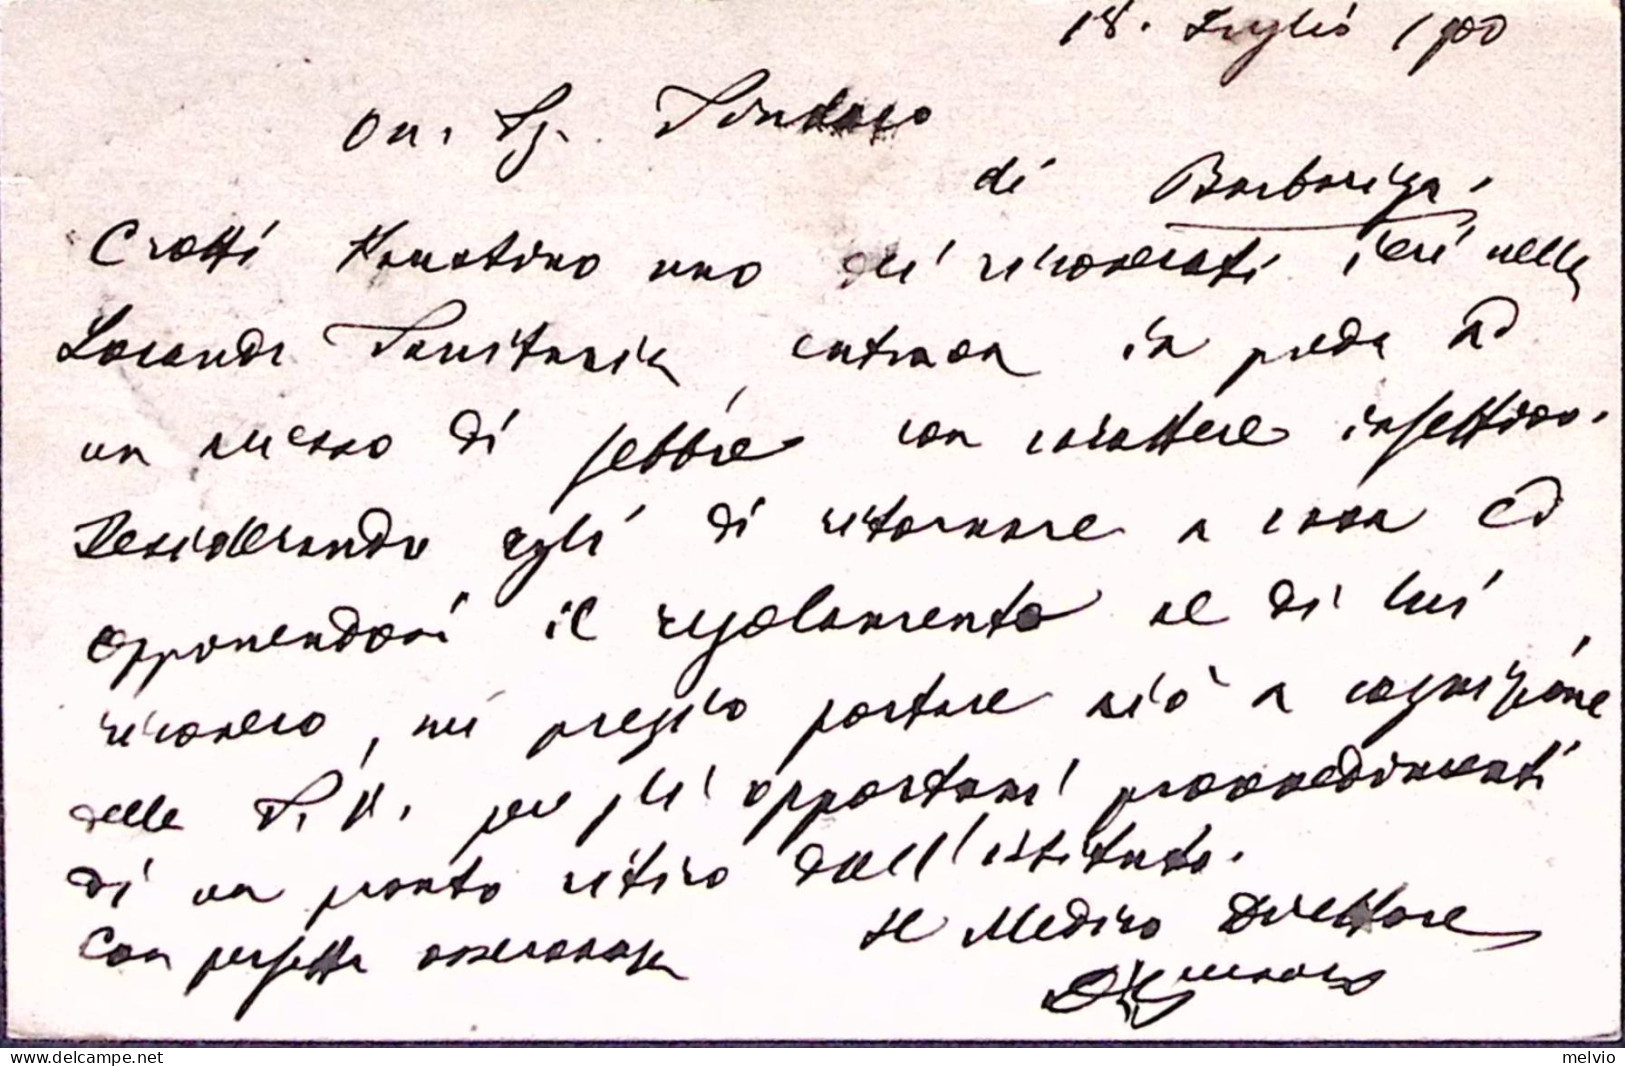 18. Luglio 1900
On. Sg. Sindaco
di Barbariga.
Crotti Faustino uno dei ricoverati ieri nella
Locanda Sanitaria, entrava in preda ad
un accesso di febbre con carattere infettivo.
Desiderando egli di ritornare a casa ed
opponendosi il regolamento al di lui
ricovero, mi pregio portare ciò a cognizione
della S. V. per gli opportuni provvedimenti
di un pronto ritiro dall'istituto.
Con perfetta osservanza
Il Medico Direttore
delcampe.net
melvio